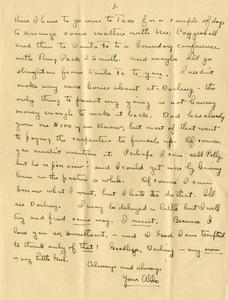 3.
then I have to go over to Taos for a couple of days
to arrange some matters with Mrs.
and then to Santa Fe to a boundary conference
with and maybe I'll go
straight on from Santa Fe to you. I needn't
make any more bones about it: Darling — the
only thing to prevent my going is not having
money enough to make it back. Dad has already
given me $100 you know, but most of that went
to paying the carpenters to finish up. Of course
you mustn't mention it. Perhaps I can sell Polly
but he is "pen now" and I could get more by having
him in the pasture a while. Of course I can
borrow what I want, but I hate to do that. I'll
see Darling. I may be delayed a little but I will
try and find some way. I must. Because I
love you so, sweetheart, — and I dead I am tempted
to think only of that! Goodbye, Darling — my own
— my little
Always and always
Your Aldo